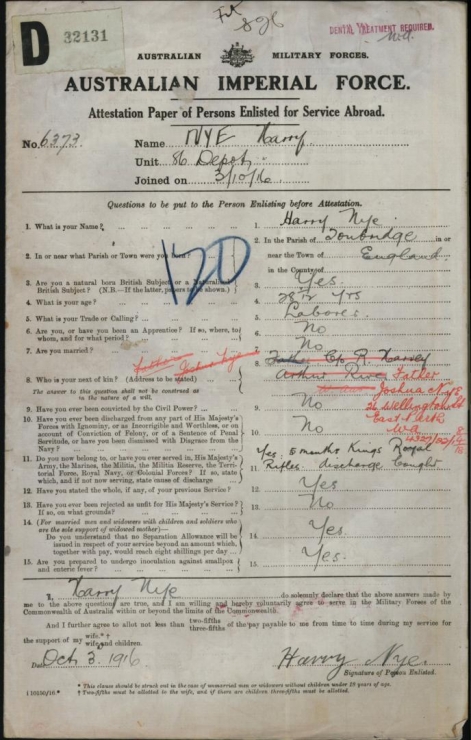 D 32131
896
DENTAL TREATMENT REQUIRED.
AUSTRALIAN MILITARY FORCES.
AUSTRALIAN IMPERIAL FORCE.
Attestation Paper of Persons Enlisted for Service Abroad.
No. 6373. Name NYE Harry
Unit 86 Depot
Joined on 3/10/16
Questions to be put to the Person Enlisting before Attestation.
1. What is your Name? 1. Harry Nye.
2. In or near what Parish or Town were you born? 2. In the Parish of Tonbridge in or
near the Town of England
in the County of
120
3. Are you a natural born British Subject or a Naturalized
British Subject? (N.B.—If the latter, papers to be shown.) 3. Yes
4. What is your age? 4. 28 Yrs
5. What is your Trade or Calling? 5. Labourer
6. Are you, or have you been an Apprentice? If so, where, to
whom, and for what period? 6. No
7. Are you married? 7. No
8. Who is your next of kin? (Address to be stated) 8. Father C/o R Harvey
Arthur River Father
The answer to this question shall not be construed as
in the nature of a will.
Joshua Nye
26 Wellington St
East Perth
W.A.
9. Have you ever been convicted by the Civil Power? 9. No
10. Have you ever been discharged from any part of His Majesty's
Forces with Ignominy, or as Incorrigible and Worthless, or on
account of Conviction of Felony, or of a Sentence of Penal
Servitude, or have you been dismissed with Disgrace from the
Navy? 10. No
11. Do you now belong to, or have you ever served in, His Majesty's
Army, the Marines, the Militia, the Militia Reserve, the Terri-
torial Force, Royal Navy, or Colonial Forces? If so, state
which, and if not now serving, state cause of discharge 11. Yes. 5 months Kings Royal
Rifles. discharge bought
12. Have you stated the whole, if any, of your previous Service? 12. Yes
13. Have you ever been rejected as unfit for His Majesty's Service? If
so, on what grounds? 13. No
14. (For married men and widowers with children and soldiers who
are the sole support of widowed mother)—
Do you understand that no Separation Allowance will be
issued in respect of your service beyond an amount which,
together with pay, would reach eight shillings per day 14. Yes.
15. Are you prepared to undergo inoculation against smallpox
and enteric fever? 15. Yes.
I, Harry Nye do solemnly declare that the above answers made by
me to the above questions are true, and I am willing and hereby voluntarily agree to serve in the Military Forces of the
Commonwealth of Australia within or beyond the limits of the Commonwealth.
And I further agree to allot not less than two-fifths three-fifths of the pay payable to me from time to time during my service for
the support of my wife.* † wife and children.
Date Oct 3. 1916 Harry Nye.
Signature of Person Enlisted.
* This clause should be struck out in the case of unmarried men or widowers without children under 18 years of age.
† Two-fifths must be allotted to the wife, and if there are children three-fifths must be allotted.